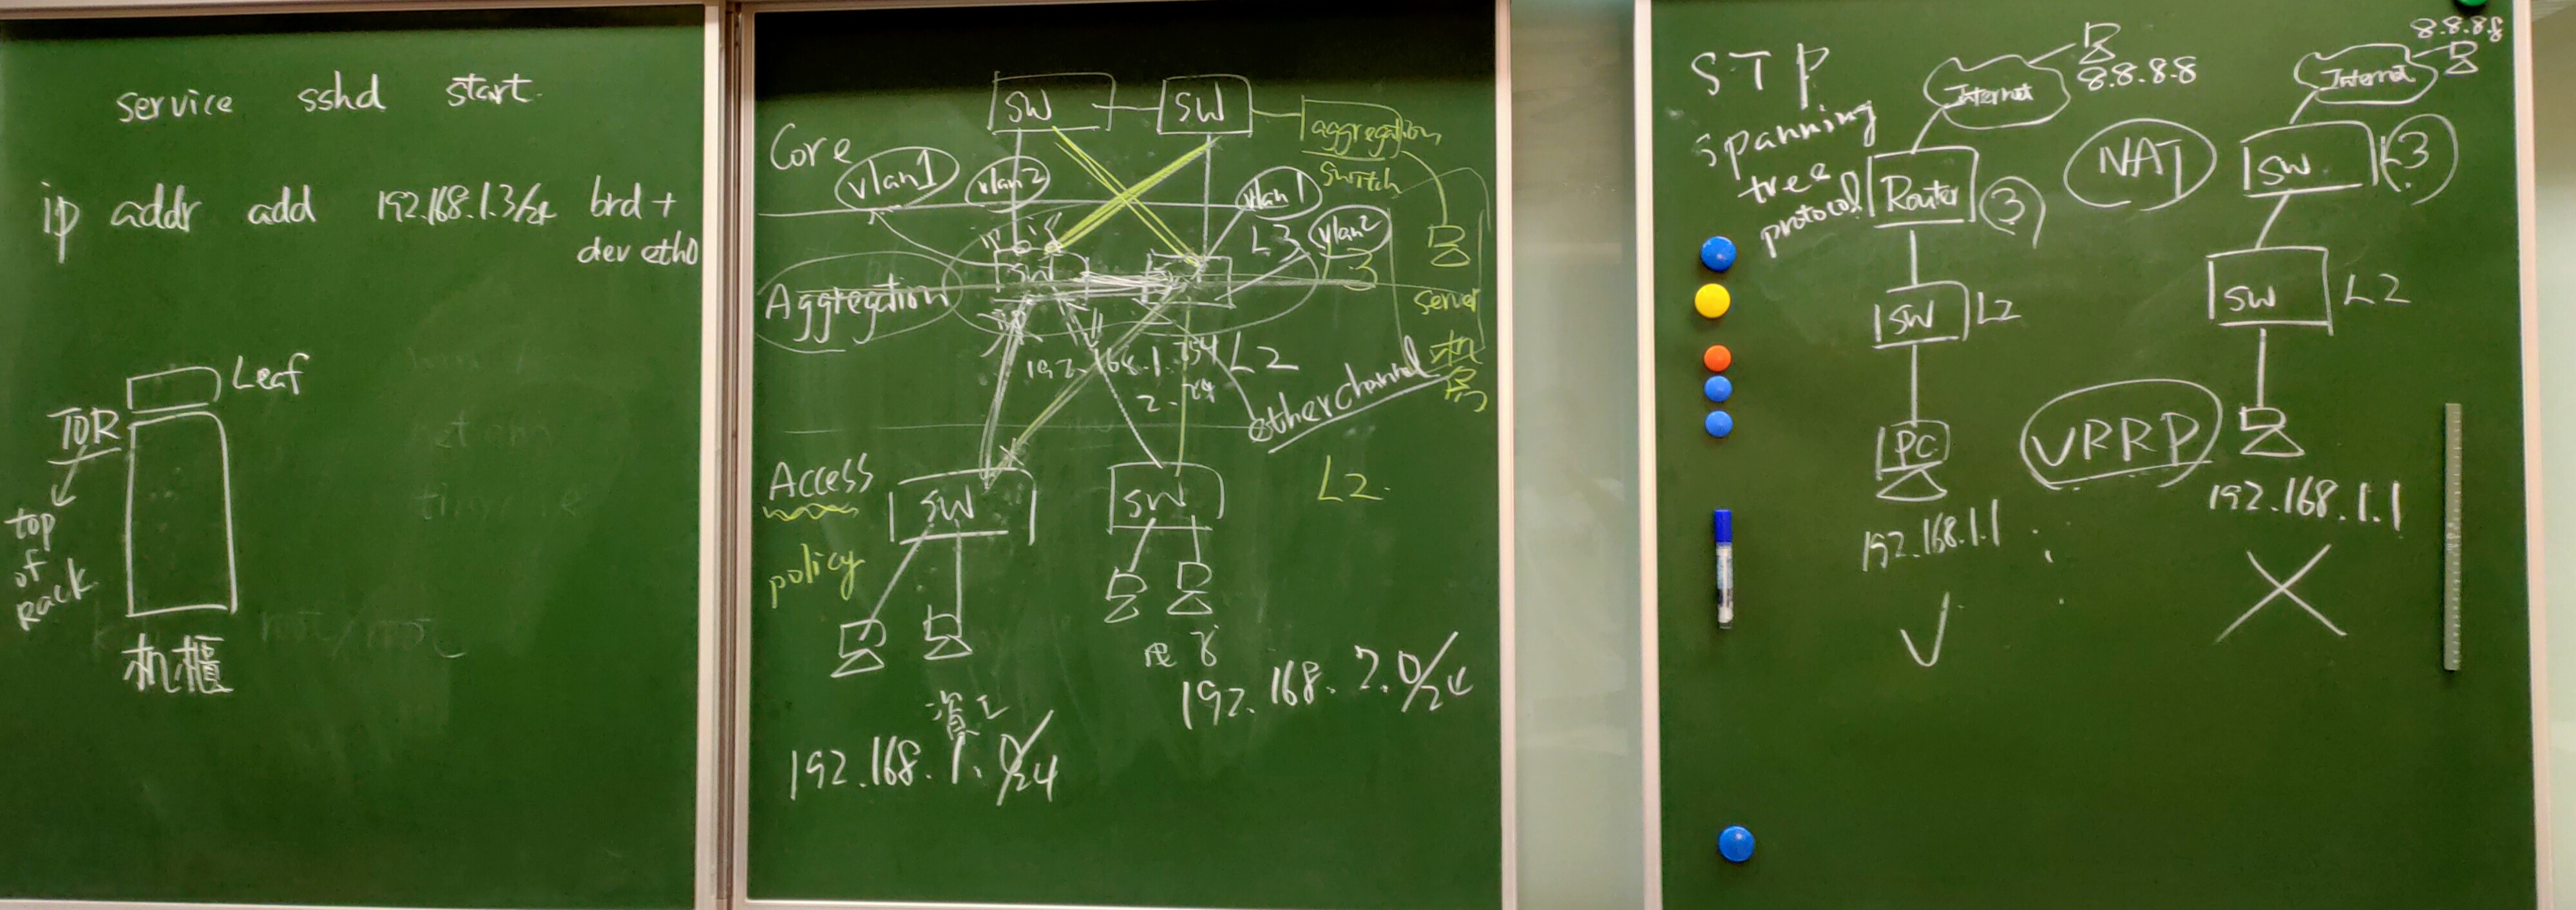 service sshd start
ip addr add 192.168.1.3/24 brd +
dev eth0
Leaf
TOR
top
of
Rack
机櫃
SW SW
aggregation
switch
Core
vlan1 vlan2 vlan1
L3 vlan2
SW
Aggregation
server
192.168.1.254 L2
2.
etherchannel
Access
SW SW
L2
policy
資工
192.168.1.0/24
192.168.2.0/24
STP
spanning
tree
protocol
Internet
8.8.8.8
Router
3
SW L2
PC
192.168.1.1
NAT
VRRP
8.8.8.8
Internet
SW L3
SW L2
192.168.1.1